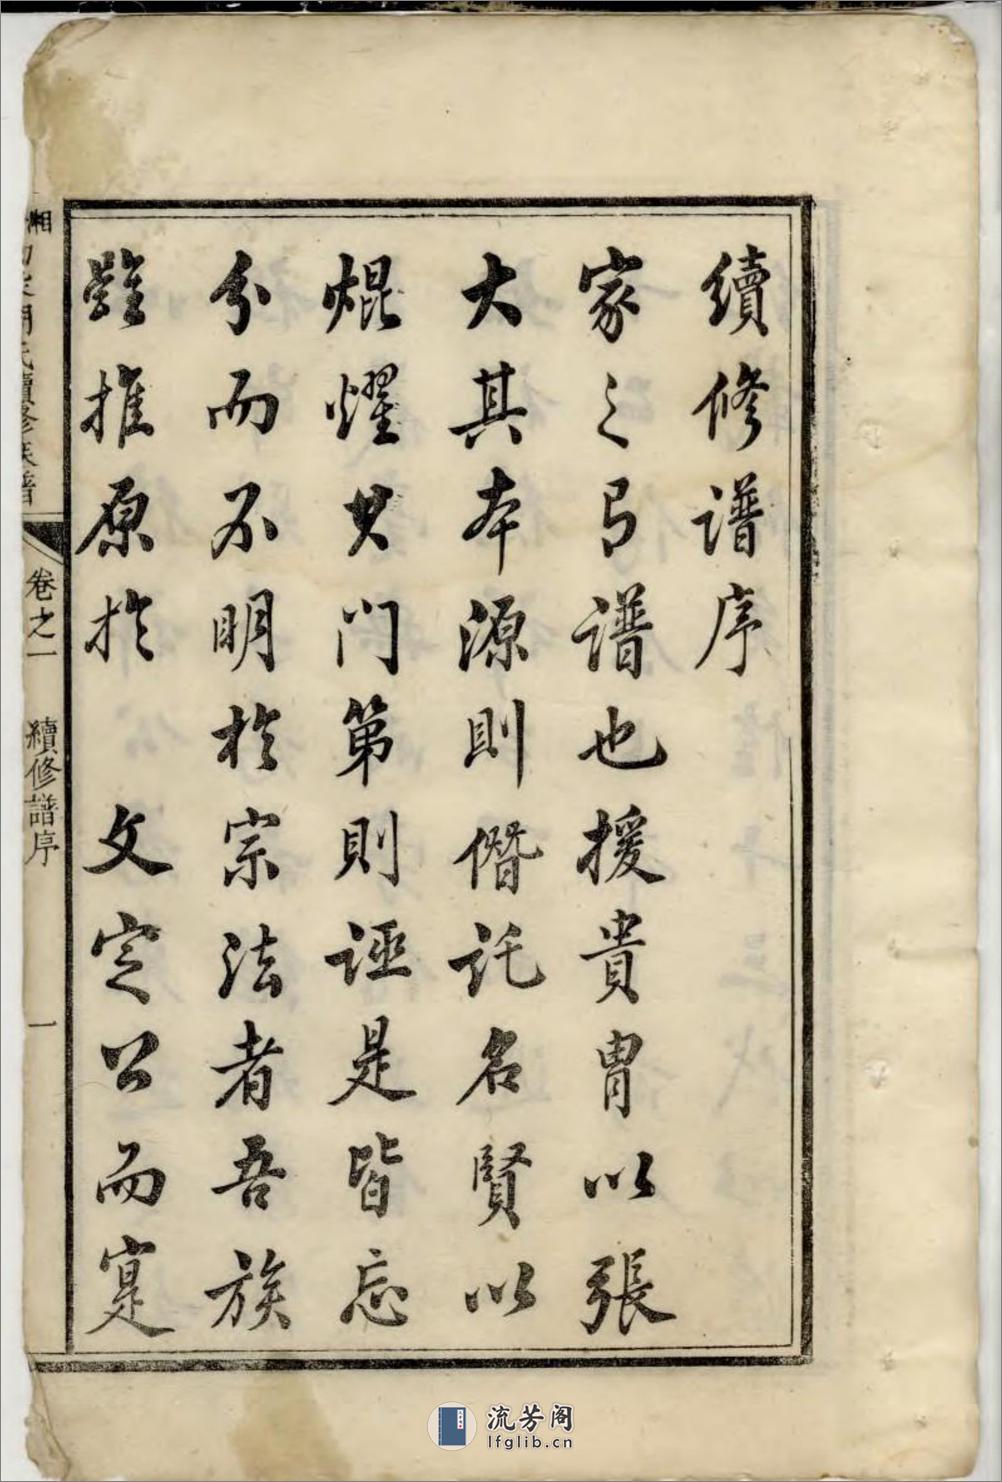 續修譜序
家之弓譜也援貴胄以張
大其本源則僭託名賢以
焜燿其門第則誣是皆忘
分而不明於宗法者吾族
雖推原於 文定公而寔
湘
氏續修族譜
卷之一
續修譜序
一
流芳阁
lfglib.cn